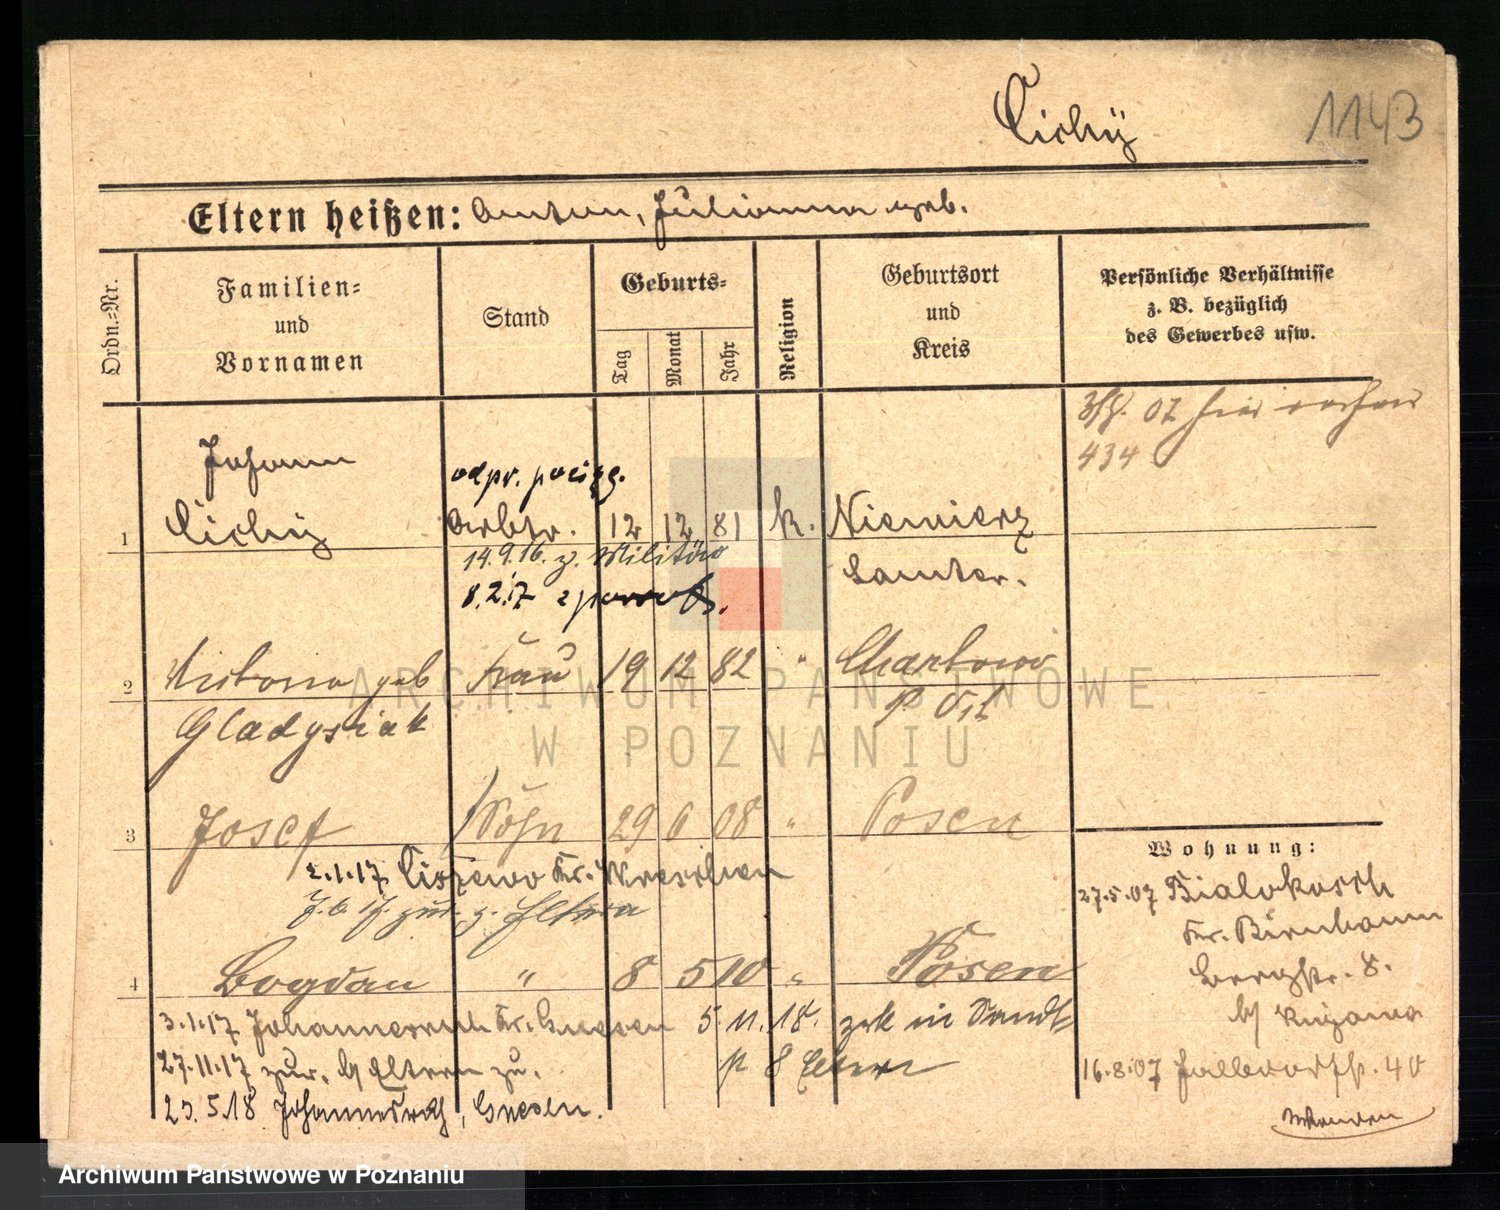 Cichy
1143
Eltern heißen: Anton, Julianna geb.
Ordn.-Nr.
Familien-
und
Vornamen
Stand
Geburts-
Tag
Monat
Jahr
Religion
Geburtsort
und
Kreis
Persönliche Verhältnisse
z. B. bezüglich
des Gewerbes usw.
07 hier
434
Johann
1 Cichy Arbtr. 12 12 81 k. Niemierz
14.9.16. z. Militär
Samter.
8.2.17
2 Victoria geb Frau 19 12 82 " Chartowo
Gladysiak P. Ost
3 Josef Sohn 29 6 08 " Posen
2.1.17 Ciszewo Kr. Wreschen
zur. z. Eltern
4 Bogdan " 8 5 10 " Posen
3.1.17 Johannesruh Kr. Gnesen 5.11.18. zrk in Stadt
27.11.17 zur. Eltern zu.
p 8 Eltern
23.5.18 Johannesruh, Gnesen.
Wohnung:
27.5.07 Bialokosch
Kr. Birnbaum
Bergstr. 8.
b/ Kujawa
16.8.07 40
wenden
ARCHIWUM PAŃSTWOWE
W POZNANIU
Archiwum Państwowe w Poznaniu